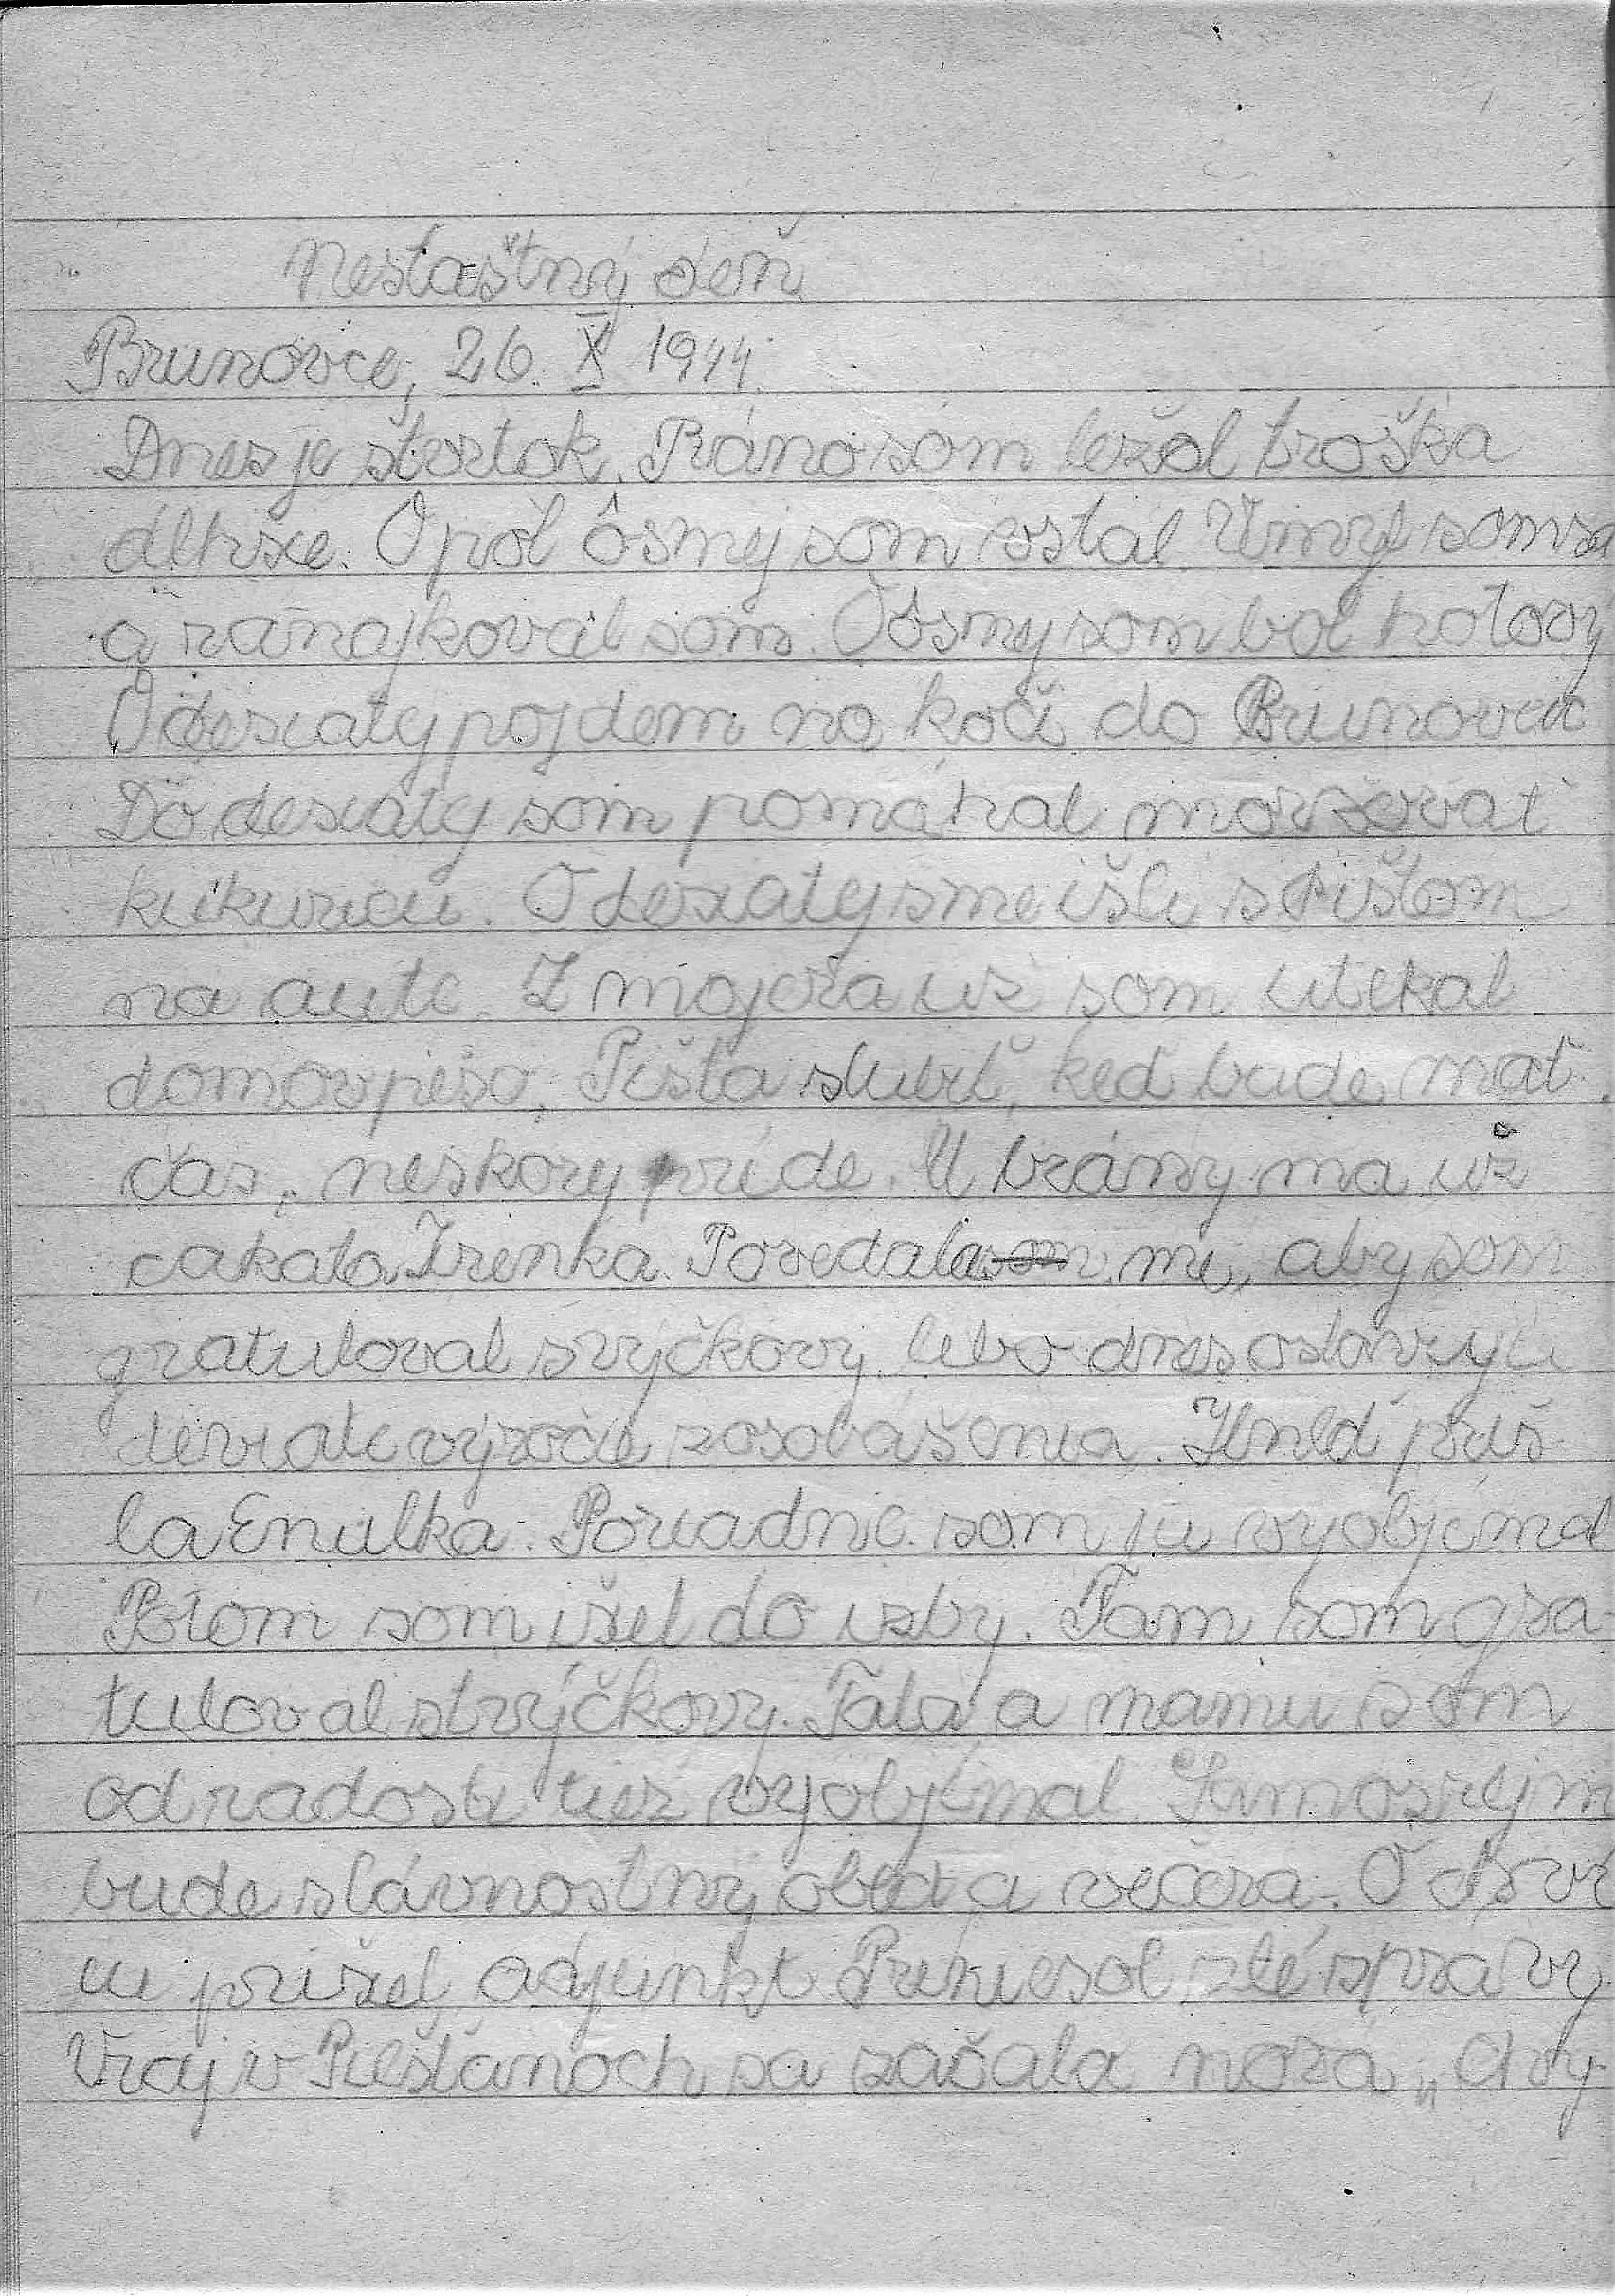 Nešťaštný deň
Brunovce, 26. X 1944.
Dnes je štvrtok. Ráno som ležal troška
dlhšie. O pol ôsmej som vstal. Umyl som sa
a raňajkoval som. O ôsmy som bol hotový
O desiaty pojdem na koči do Brunoviec
Do desiaty som pomáhal moržovať
kukuricu. O desiaty sme išli s Pištom
na aute. Z majera už som utekal
domov pešo. Pišta slubil, keď bude mať
čas, neskory príde. U brány ma už
čakala Irenka. Povedala som mi, aby som
gratuloval strýčkovy lebo dnes oslavujú
deviate výročie zosobášenia. Ihneď priš
la Enulka. Poriadne som ju vyobjímal
Potom som išiel do izby. Tam som gra
tuloval strýčkovy. Tata a mamu som
od radosti tiež vyobjímal. Samozrejm
bude slávnostný obed a večera. O
u prišiel adjunkt Priniesol zlé správy
Vraj v Piešťanoch sa začala nová „